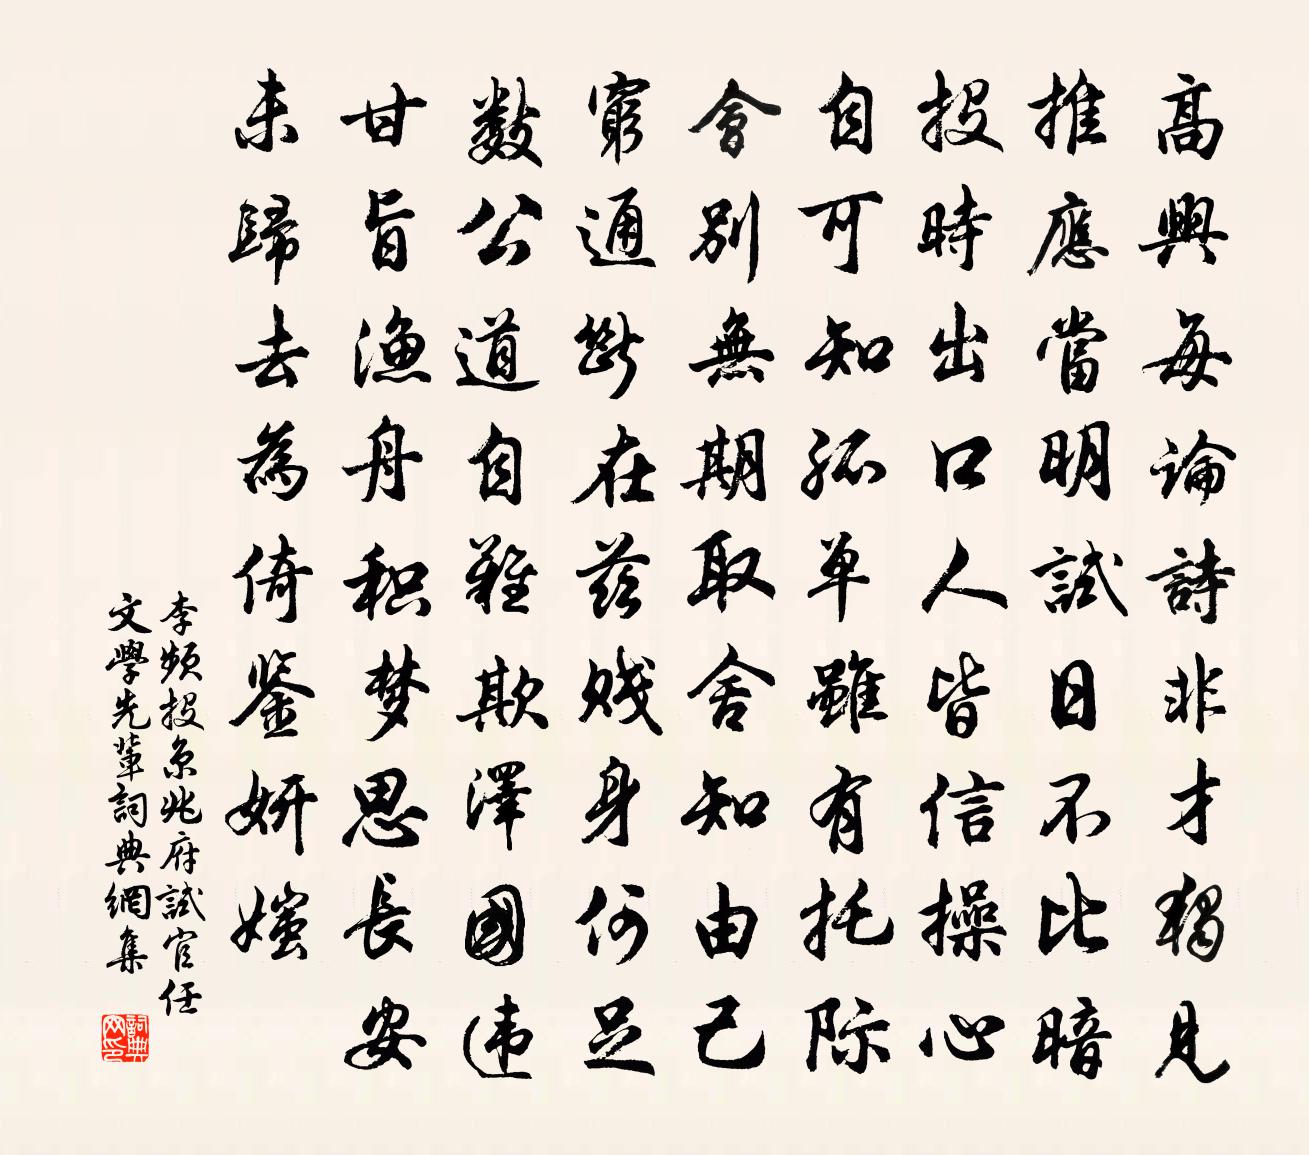 高興每論詩非才獨見
推應當明試日不比暗
投時出口人皆信操心
自可知孤單雖有托際
會別無期取舍知由己
窮通斷在茲賤身何足
數公道自難欺澤國違
甘旨漁舟积梦思長安
未歸去為倚鉴妍媸
李頻投京兆府試官任
文學先輩詞典網集
詞典
网印